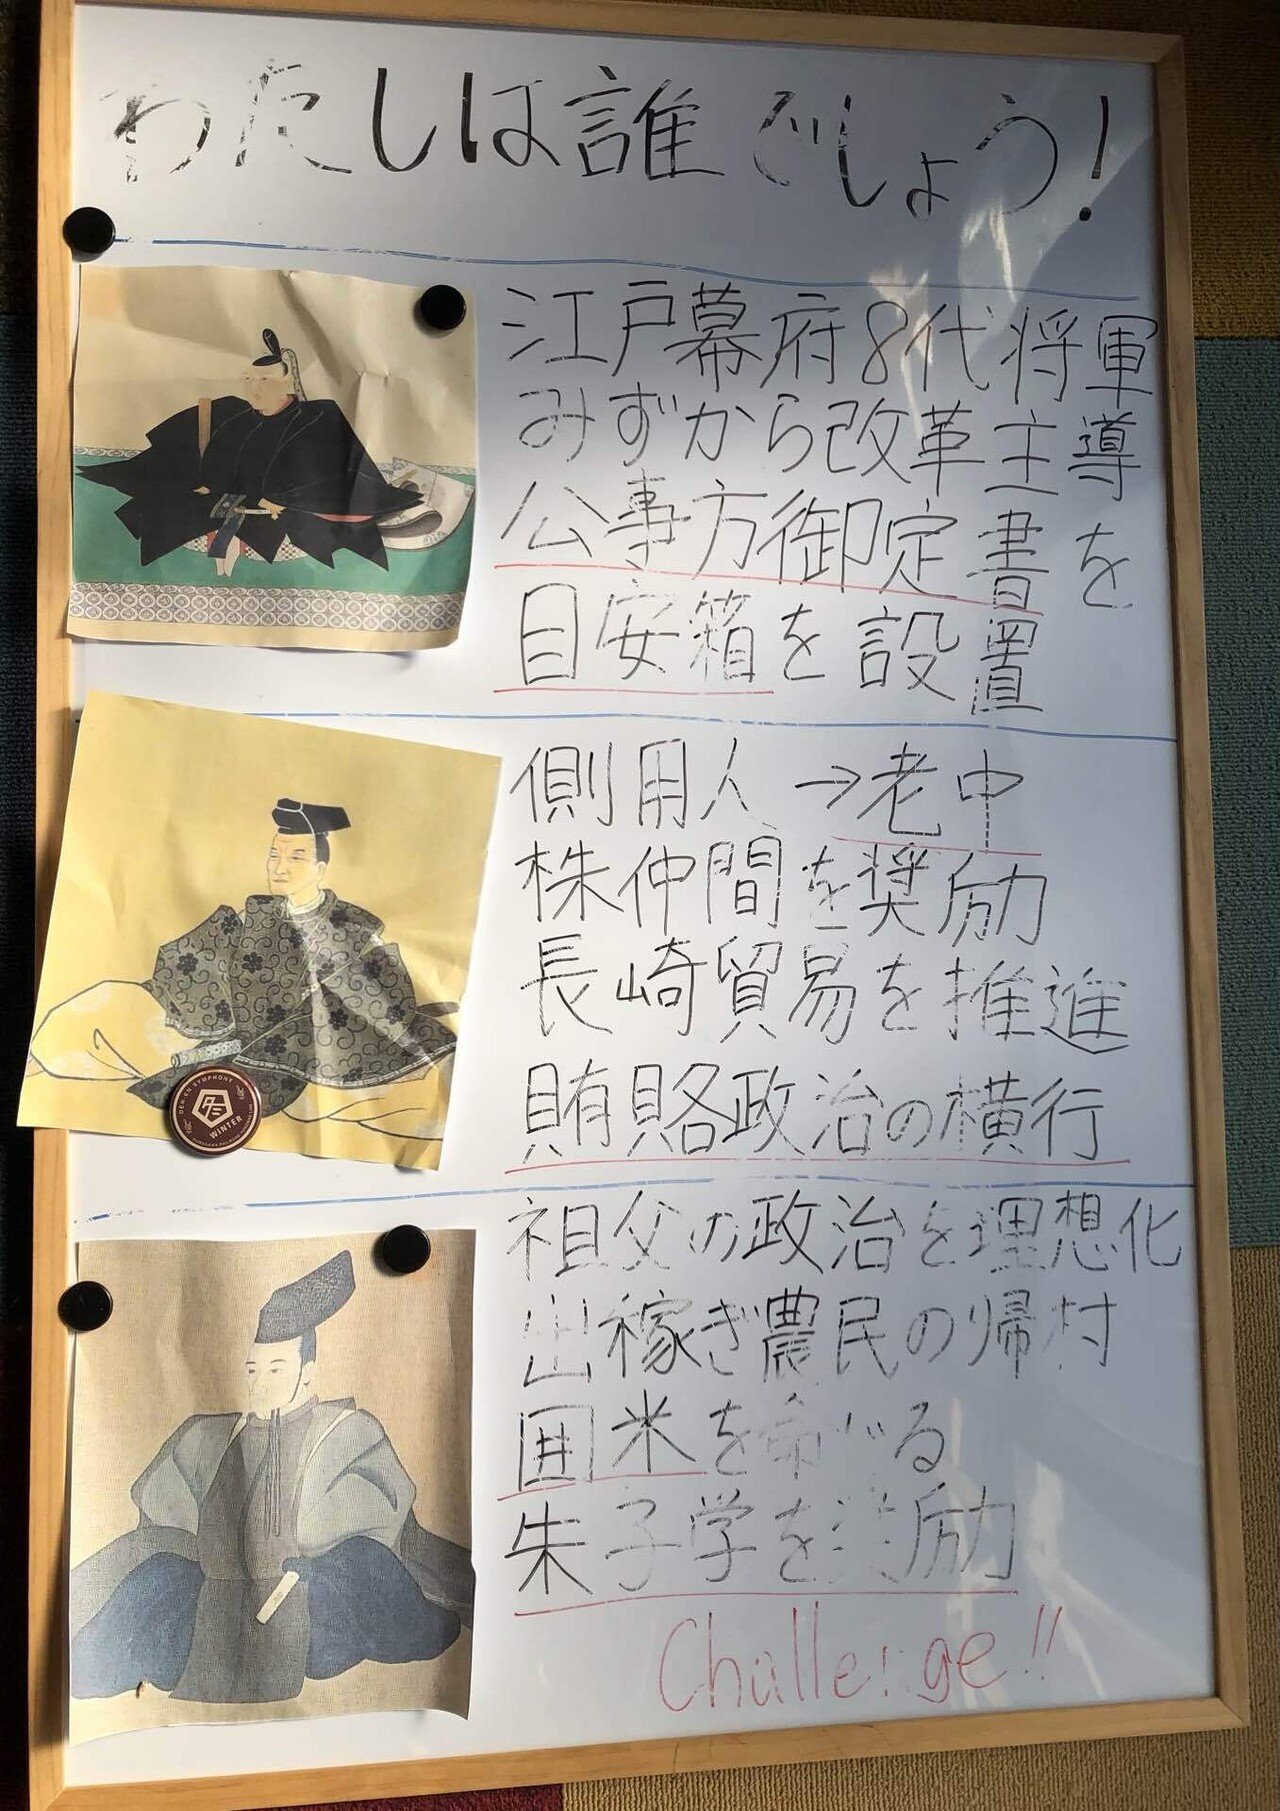 わたしは誰でしょう!
江戸幕府8代将軍
みずから改革主導
公事方御定書を
目安箱を設置
側用人→老中
株仲間を奨励
長崎貿易を推進
賄賂政治の横行
DEN EN SYMPHONY
WINTER
祖父の政治を理想化
出稼ぎ農民の帰村
囲米を命じる
朱子学を奨励
Challenge!!